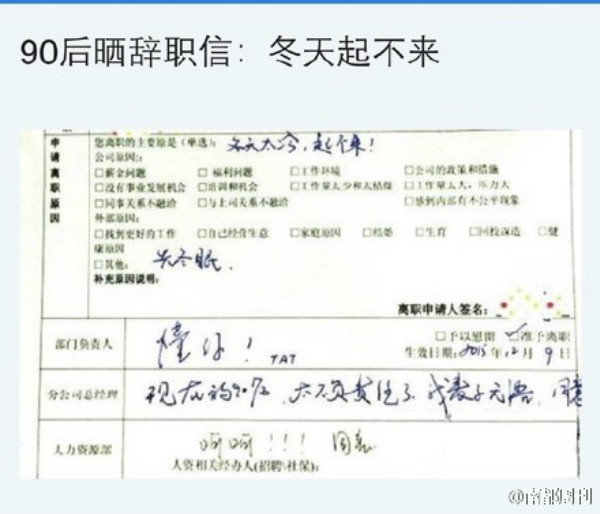 90后晒辞职信：冬天起不来
您离职的主要原是(单选)：冬天太冷，起不来！
申请离职原因
公司原因:
□薪金问题 □福利问题 □工作环境 □公司的政策和措施
□没有事业发展机会 □培训和机会 □工作量太少和太枯燥 □工作量太大，压力大
□同事关系不融洽 □与上司关系不融洽 □感到内部有不公平现象
外部原因:
□找到更好的工作 □自己经营生意 □家庭原因 □结婚 □生育 □回校深造 □健
康原因
□其他: 去冬眠.
补充原因说明:
离职申请人签名:
部门负责人 懂你! TAT
□予以慰留 ☑准予离职
生效日期:2015年12月9日
分公司总经理 现在的90后，太不负责任了，我表示无语，同意
人力资源部 呵呵!!! 同意
人资相关经办人(招聘\社保):
@南都周刊